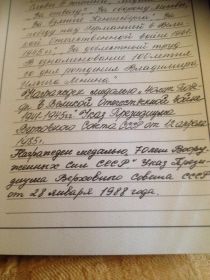 отвагу". "За оборону Москвы,
"За взятие Кенигсберга".
победу над Германией в Вели-
кой Отечественной войне 1941-
1945гг" "За доблестный труд
В ознаменование 100-летия
со дня рождения Владимира
Ильича Ленина"
Награжден медалью "40 лет Побе-
ды в Великой Отечественной войне
1941-1945гг" Указ Президиума
Верховного Совета СССР от 12 апреля
1985г.
Награжден медалью "70 лет Воору-
женных Сил СССР" Указ Прези-
диума Верховного Совета СССР
от 28 января 1988 года.